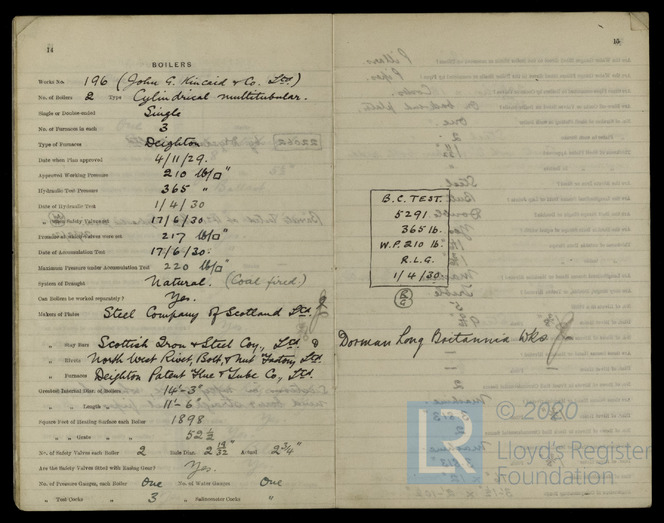 14
BOILERS
Works No. 196 (John G. Kincaid & Co. Ltd.)
No. of Boilers 2 Type Cylindrical multitubular.
Single or Double-ended Single
No. of Furnaces in each 3
Type of Furnaces Deighton
Date when Plan approved 4/11/29.
Approved Working Pressure 210 lb/□"
Hydraulic Test Pressure 365 "
Date of Hydraulic Test 1/4/30
" when Safety Valves set 17/6/30.
Pressure at which Valves were set 217 lb/□"
Date of Accumulation Test 17/6/30.
Maximum Pressure under Accumulation Test 220 lb/□"
System of Draught Natural. (Coal fired)
Can Boilers be worked separately? Yes.
Makers of Plates Steel Company of Scotland Ltd.
" Stay Bars Scottish Iron & Steel Coy., Ltd. &
" Rivets North West Rivet, Bolt, & Nut Factory, Ltd.
" Furnaces Deighton Patent Flue & Tube Co., Ltd.
Greatest Internal Diam. of Boilers 14'-3"
" " Length " 11'-6"
Square Feet of Heating Surface each Boiler 1898
" " Grate " " 52½
No. of Safety Valves each Boiler 2 Rule Diam. 2 19/32" Actual 2¾"
Are the Safety Valves fitted with Easing Gear? Yes.
No. of Pressure Gauges, each Boiler One No. of Water Gauges One
" Test Cocks " 3 " Salinometer Cocks "
15
B.C. TEST.
5291
365 lb.
W.P. 210 lb.
R.L.G.
1/4/30
Dorman Long Britannia Wks.
© 2020
LR
Lloyd's Register
Foundation